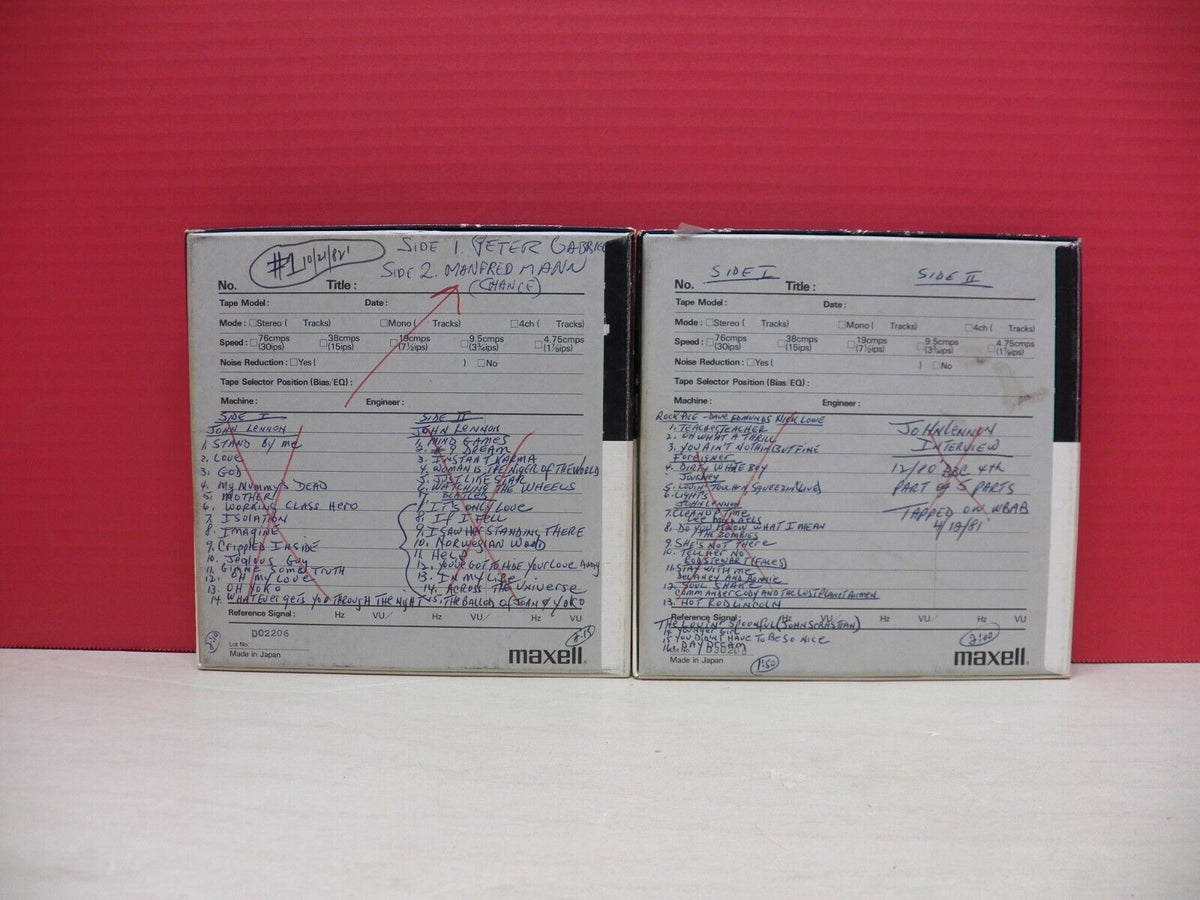 #1 10/21/82'
SIDE 1. PETER GABRIEL
SIDE 2. MANFRED MANN
(CHANCE)
No. Title :
Tape Model : Date :
Mode : □Stereo ( Tracks) □Mono ( Tracks) □4ch ( Tracks)
Speed : □76cmps (30ips) □38cmps (15ips) □19cmps (7½ips) □9.5cmps (3¾ips) □4.75cmps (1⅞ips)
Noise Reduction : □Yes ( ) □No
Tape Selector Position (Bias/EQ) :
Machine : Engineer :
SIDE I
JOHN LENNON
1. STAND BY me
2. LOVE
3. GOD
4. My Mummy's DEAD
5. MOTHER
6. WORKING CLASS HERO
7. ISOLATION
8. IMAGINE
9. Crippled INSIDE
10. Jealous Guy
11. GIMME SOME TRUTH
12. OH MY LOVE
13. OH YOKO
14. WHATEVER GETS YOU THROUGH THE NIGHT
SIDE II
JOHN LENNON
1. MIND GAMES
2. #9 DREAM
3. INSTANT KARMA
4. WOMAN IS THE NIGER OF THE WORLD
5. JUST LIKE STAR
6. WATCHING THE WHEELS
7. BEATLES
IT'S ONLY LOVE
8. IF I FELL
9. I SAW HER STANDING THERE
10. NORWEGIAN WOOD
11. HELP
12. YOU'VE GOT TO HIDE YOUR LOVE AWAY
13. IN MY LIFE
14. ACROSS THE UNIVERSE
15. THE BALLAD OF JOHN & YOKO
Reference Signal : Hz VU/ Hz VU/ Hz VU
Lot No. D02206
Made in Japan
2:15
maxell®
SIDE I SIDE II
No. Title :
Tape Model : Date :
Mode : □Stereo ( Tracks) □Mono ( Tracks) □4ch ( Tracks)
Speed : □76cmps (30ips) □38cmps (15ips) □19cmps (7½ips) □9.5cmps (3¾ips) □4.75cmps (1⅞ips)
Noise Reduction : □Yes ( ) □No
Tape Selector Position (Bias/EQ) :
Machine : Engineer :
ROCKPILE - DAVE EDMUNDS NICK LOWE
1. TEACHER TEACHER
2. OH WHAT A THRILL
3. YOU AIN'T NOTHIN BUT FINE
Foreigner
4. DIRTY WHITE BOY
JOURNEY
5. LOVIN TOUCHIN SQUEEZIN (LIVE)
6. LIGHTS
JOHN LENNON
7. CLEANUP TIME
LEE MICHAELS
8. DO YOU KNOW WHAT I MEAN
THE ZOMBIES
9. SHE'S NOT THERE
10. TELL HER NO
ROD STEWART (FACES)
11. STAY WITH me
DELANEY AND BONNIE
12. SOUL SHAKE
COMMANDER CODY AND THE LOST PLANET AIRMEN
13. HOT ROD LINCOLN
THE LOVIN' SPOONFUL (JOHN SEBASTIAN)
14. YOUNGER GIRL
15. YOU DIDN'T HAVE TO BE SO NICE
16. DAYDREAM
JOHN LENNON
INTERVIEW
12/80 4th
PART OF 5 PARTS
TAPPED ON WBAB
Reference Signal : Hz VU/ Hz VU/ Hz VU
Made in Japan
1:50
2:00
maxell®